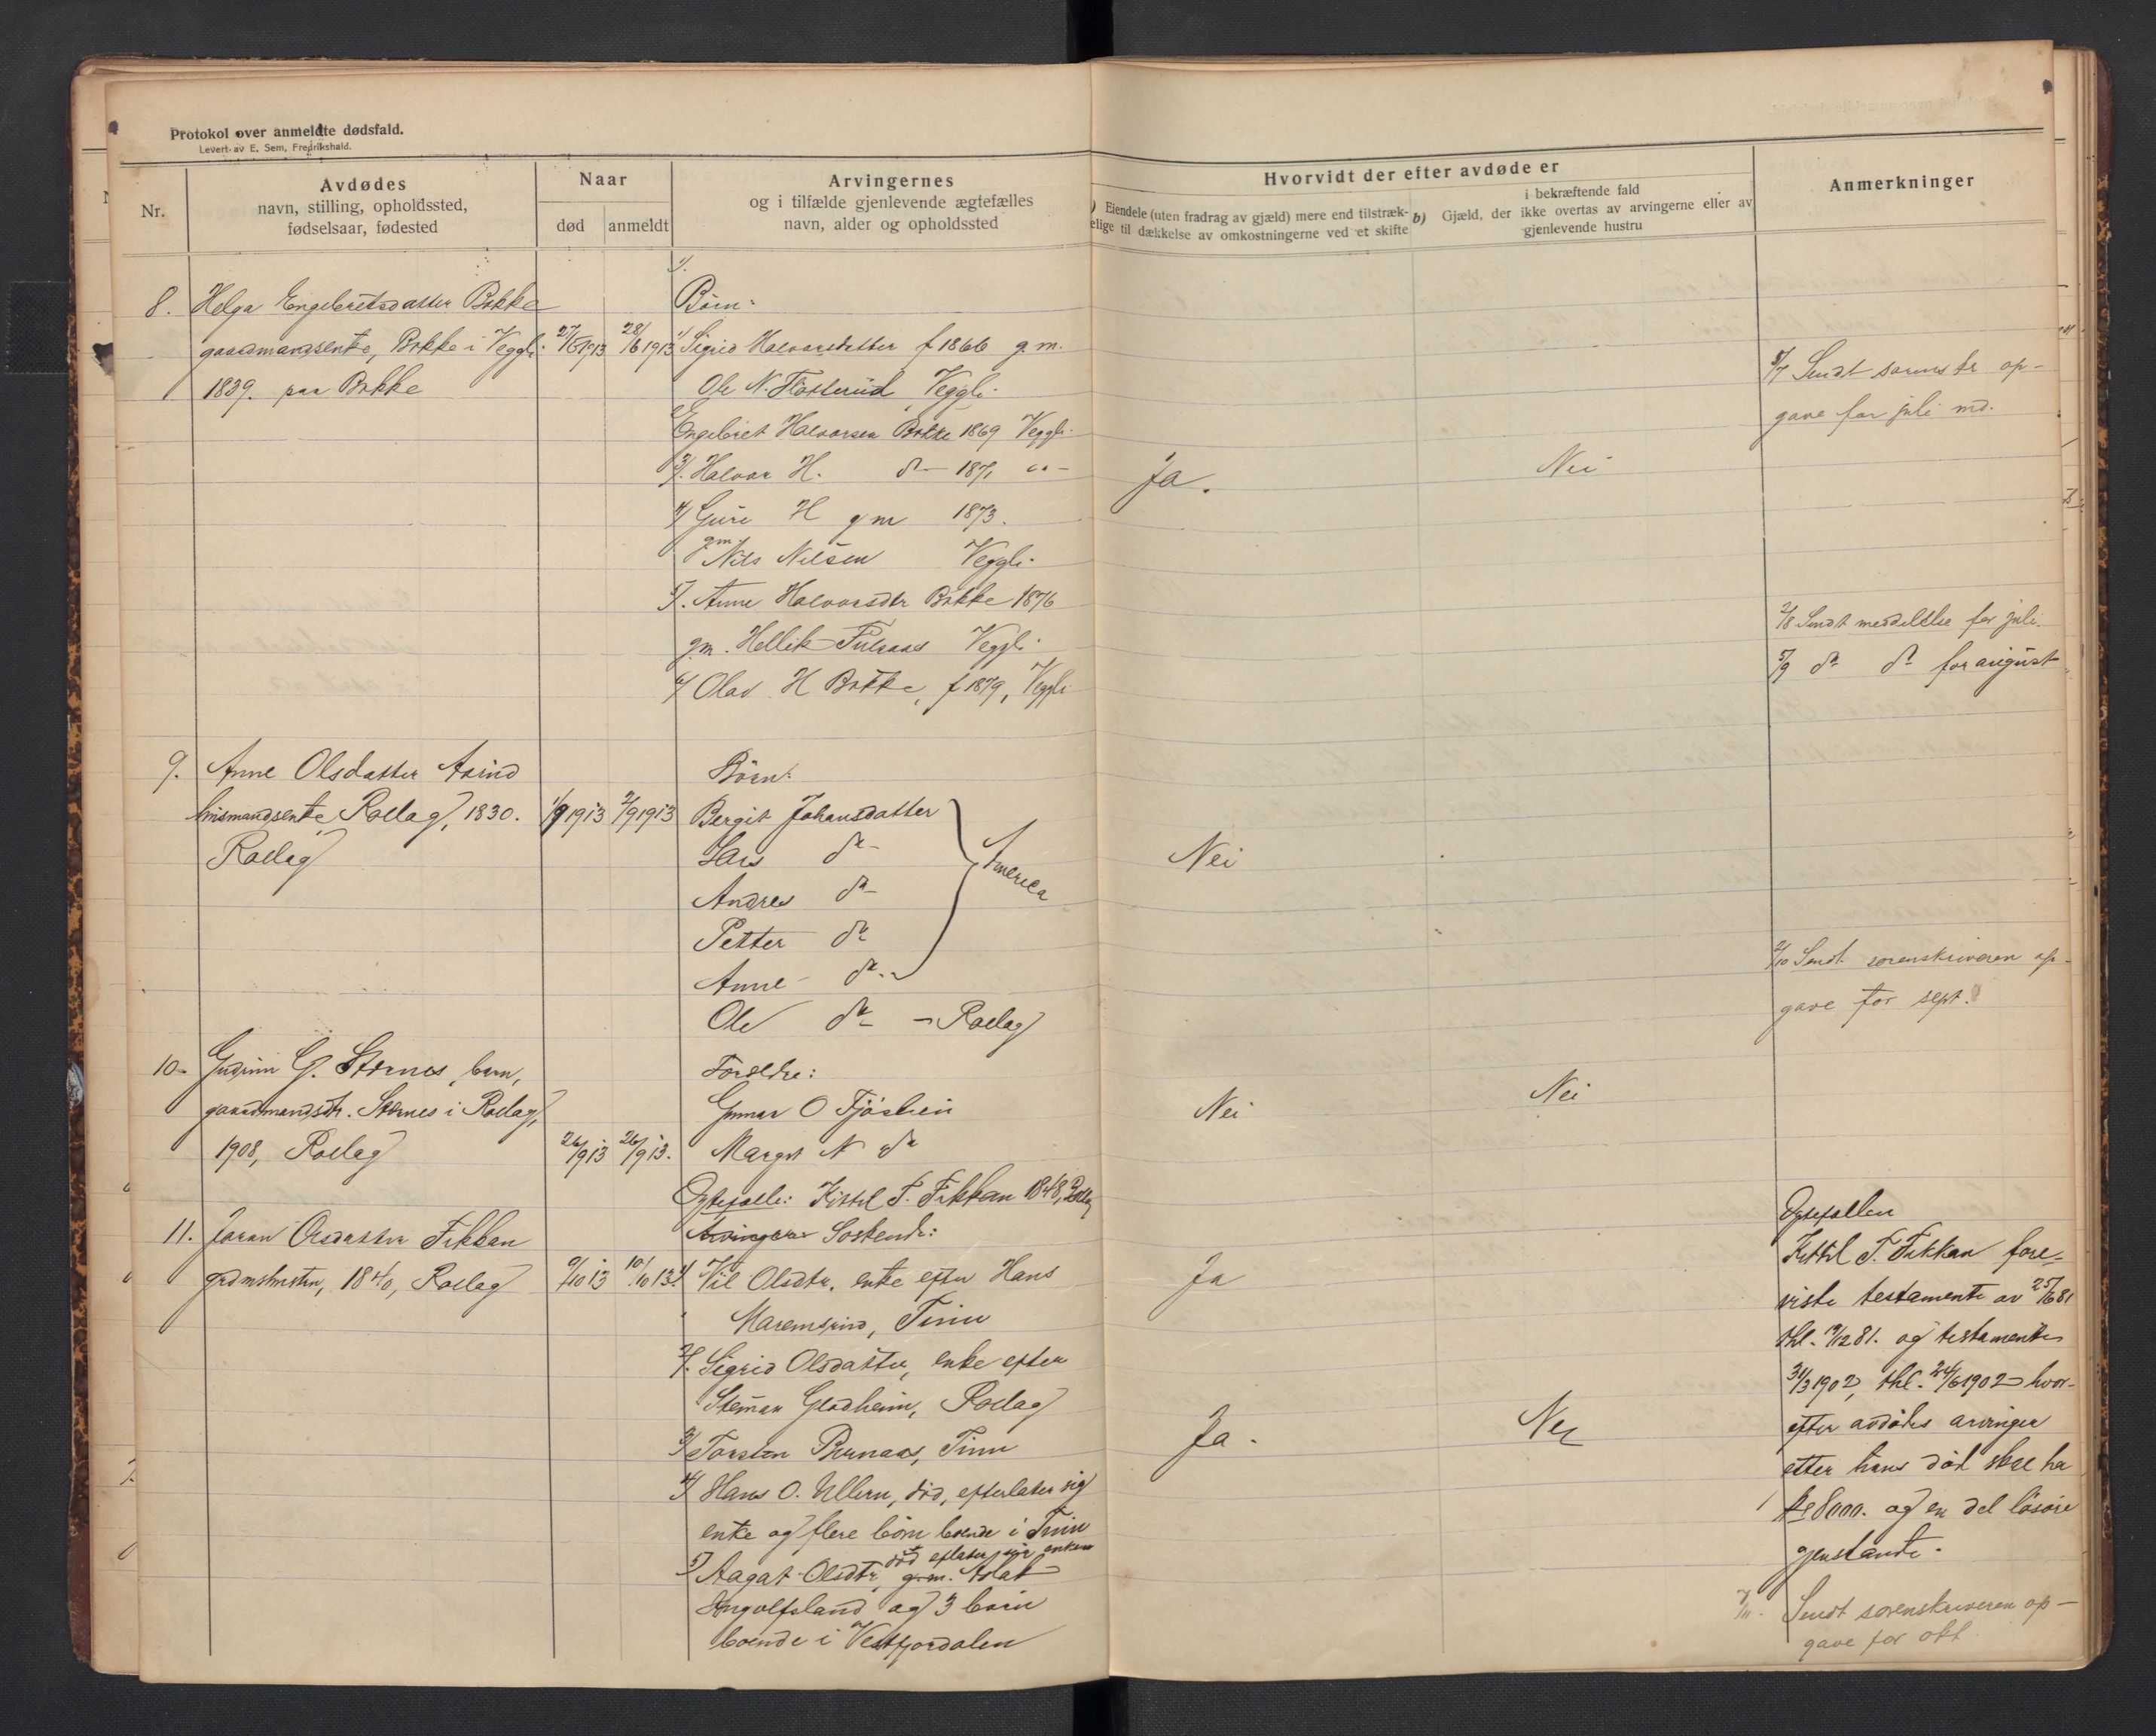 Protokol over anmeldte dødsfald.
Levert av E. Sem, Fredrikshald.
Nr.
Avdødes
navn, stilling, opholdssted,
fødselsaar, fødested
Naar
død
anmeldt
Arvingernes
og i tilfælde gjenlevende ægtefælles
navn, alder og opholdssted
Hvorvidt der efter avdøde er
) Eiendele (uten fradrag av gjæld) mere end tilstræk-
elige til dækkelse av omkostningerne ved et skifte
b) Gjæld, der
i bekræftende fald
ikke overtas av arvingerne eller av
gjenlevende hustru
Anmerkninger
8. Helga Engebretsdatter Bakke
gaardmandsenke, Bakke i Veggli.
1839. paa Bakke
28/6 1913
Børn:
1/ Sigrid Halvorsdatter f 1866 g.m.
Ole N. Fløtterud Veggli.
Engebret Halvorsen Bakke 1869 Veggli.
3/. Halvor H. do 1871 " -
4/ Guri H gm 1873.
gm Nils Nilsen Veggli.
5/. Anne Halvorsdtr Bakke 1876
gm. Hellik Veggli.
6/ Olav H Bakke, f 1879, Veggli
Ja.
Nei
5/7 Sendt op-
gave for juli md.
2/8 Sendt meddelelse for juli.
5/9 do do for august
9. Anne Olsdatter
husmandsenke Rollag, 1830.
Rollag
1/9 1913
2/9 1913
Børn:
Bergit Johansdatter
Lars do
Andres do
Petter do
Anne do
America
Ole do - Rollag
Nei
2/10 Sendt sorenskriveren op-
gave for sept.
10. Gudrun G. Stærnes, barn,
gaardmandsdtr. Stærnes i Rollag,
1908, Rollag
26/9 13
26/9 13.
Foreldre:
Gunnar O
Margit N do
Nei
Nei
11. Joran Olsdatter Fekkan
grdmshustru, 1840, Rollag
9/10 13
10/10 13.
Egtefælle: Kittel T. Fekkan 1848, Rollag
Arvingere Søskende:
1/ Vil Olsdtr. enke efter Hans
Tinn
2/. Sigrid Olsdatter, enke efter
Steinar Gladheim, Rollag
3/ Torsten Bernaas, Tinn
4/ Hans O. Ullern, død, efterlater sig
enke og flere børn boende i Tinn
død eflater sig enkem
5/ Aagat Olsdtr, g.m. Aslak
Ingolfsland og 3 børn
boende i Vestfjordalen
Ja
Ja.
Nei
Egtefællen
Kittel T. Fekkan fore-
viste testamente av 25/6 81
thl. 12 81. og testamente
31/3 1902, thl. 24/6 1902 hvor-
efter avdødes arvinger
etter hans død skal ha
kr 8000. og en del løsøre
genstande.
7/11. Sendt sorenskriveren op-
gave for okt.